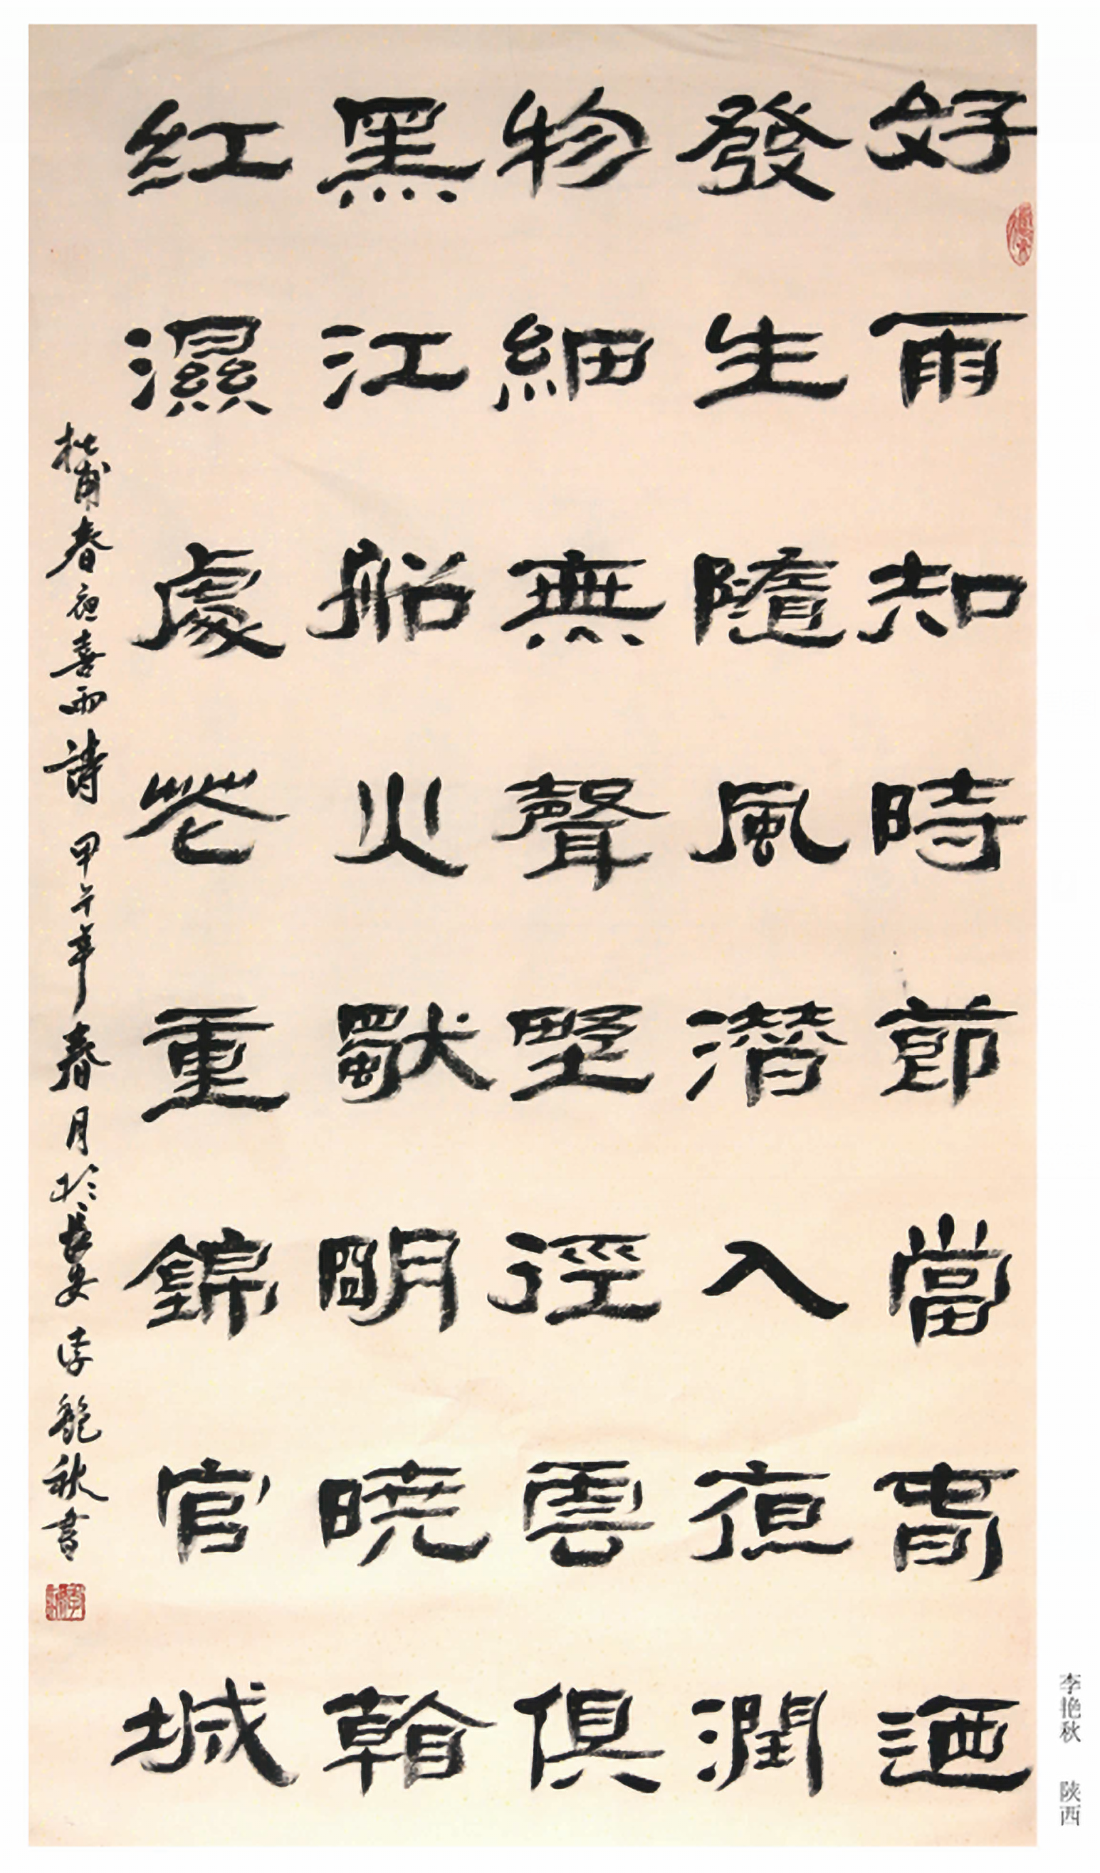 好雨知時節當春迺
發生隨風潛入夜潤
物細無聲野徑雲俱
黑江船火獨明曉看
紅濕處花重錦官城
杜甫春夜喜雨詩 甲午年春月於長安 李艷秋書
李艳秋 陕西